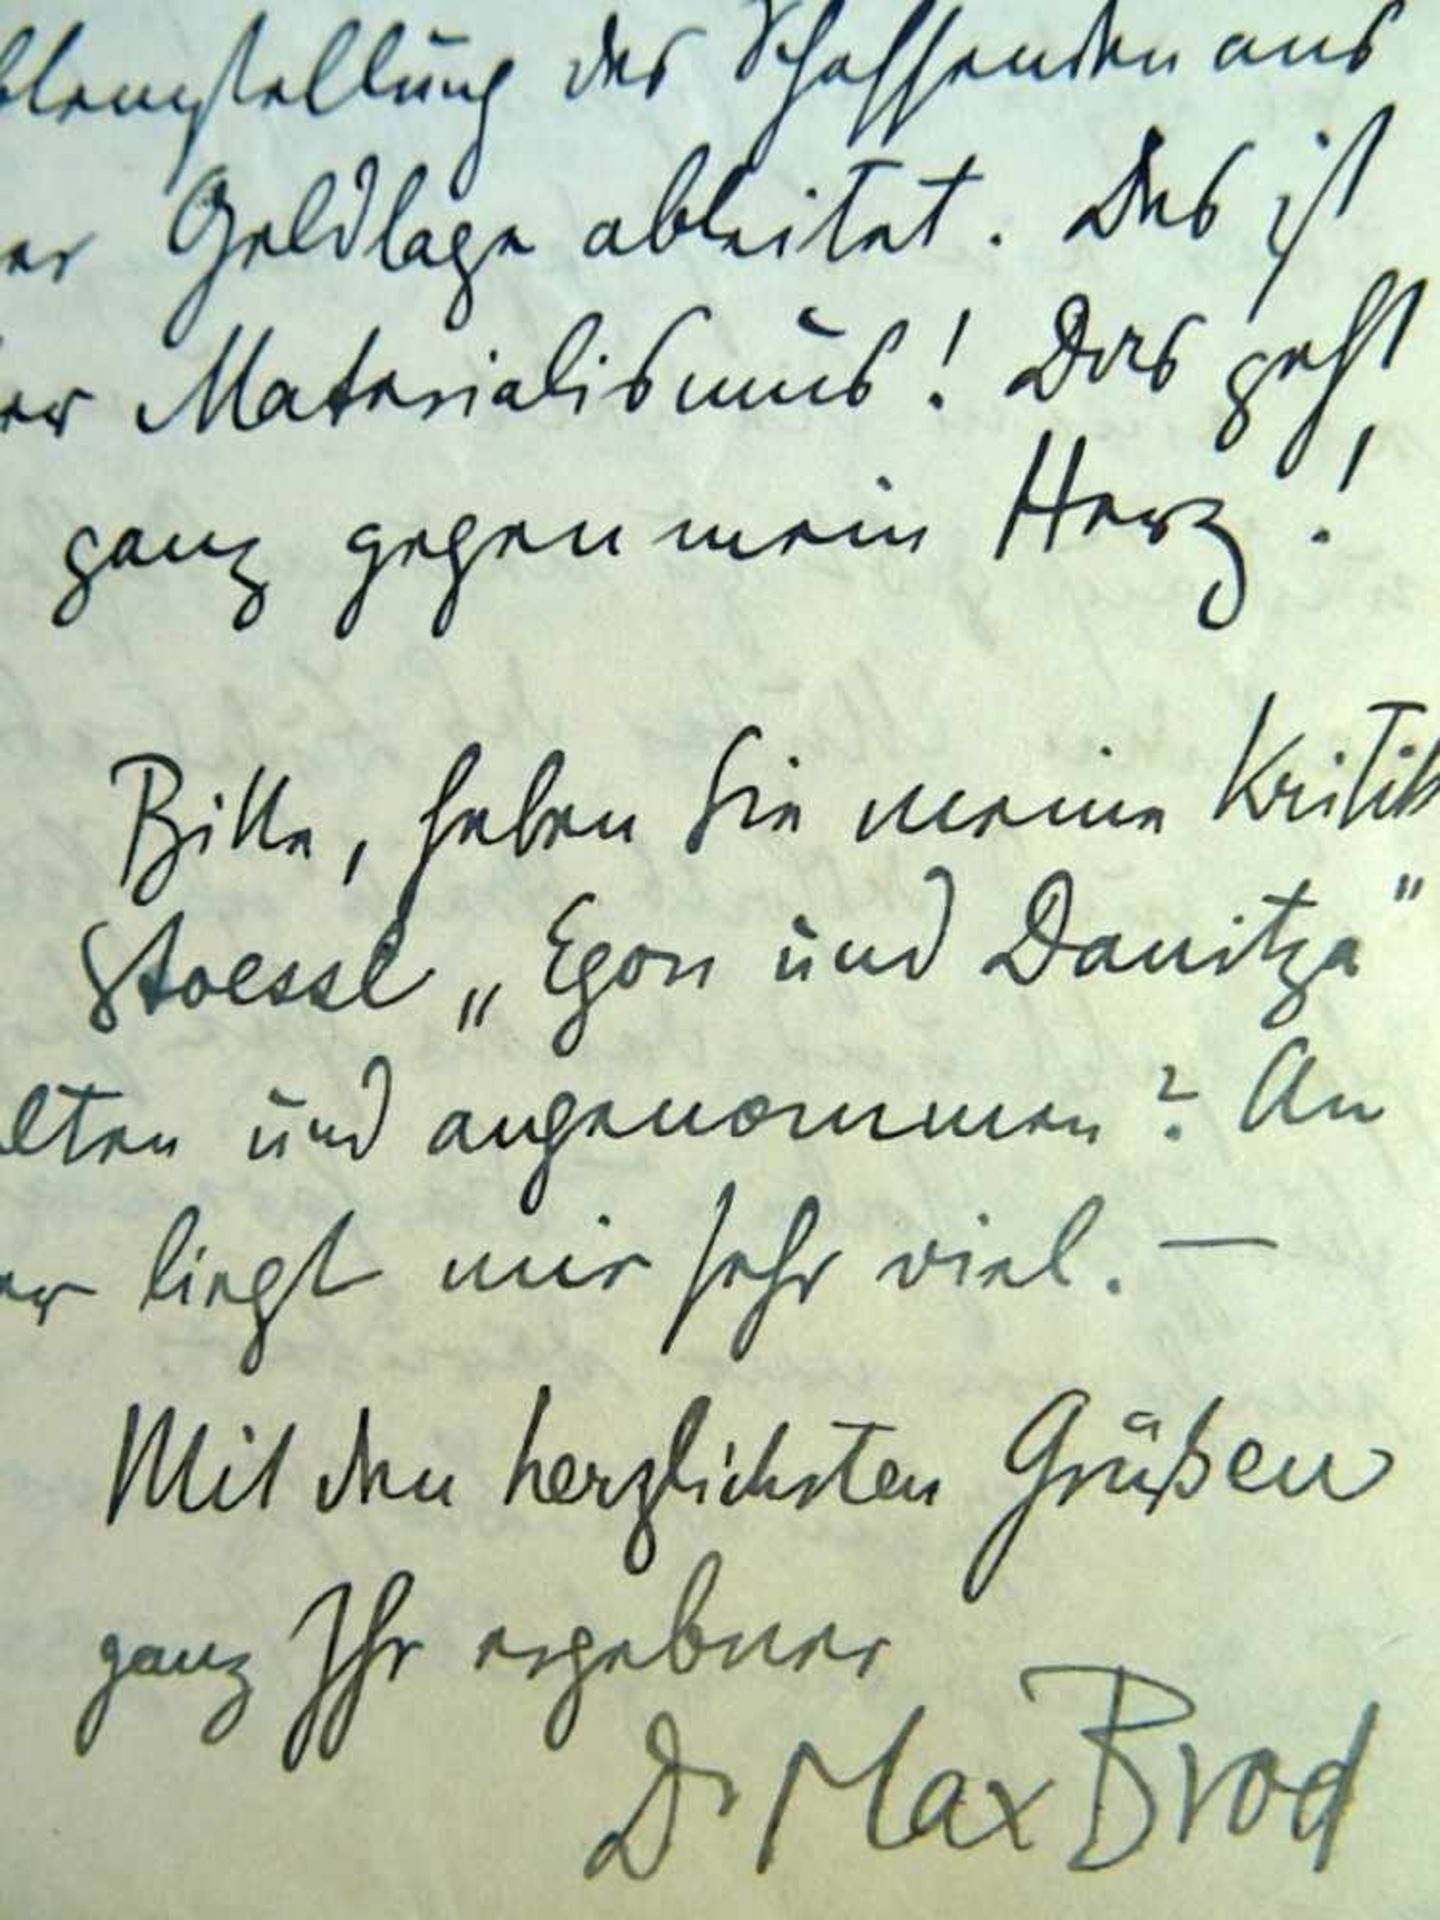 blemstellung des Schaffenden aus
er Geldlage ableitet. Das ist
er Materialismus! Das geht
ganz gegen mein Herz!
Bitte, haben Sie meine Kritik
Stoessl „Egon und Danitza"
lten und angenommen? An
er liegt mir sehr viel. —
Mit den herzlichsten Grüßen
ganz Ihr ergebner
Dr Max Brod